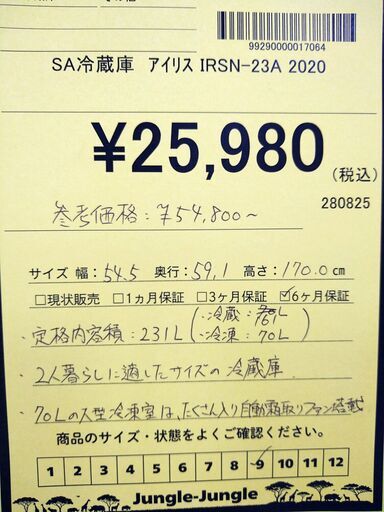 99290000017064
SA冷蔵庫 アイリス IRSN-23A 2020
¥25,980
(税込)
参考価格：¥54,800～
280825
サイズ 幅：54.5 奥行：59.1 高さ：170.0cm
□現状販売 □1ヵ月保証 □3ヶ月保証 ☑6ヶ月保証
・定格内容積：231L(・冷蔵：161L
・冷凍：70L)
・2人暮らしに適したサイズの冷蔵庫
・70Lの大型冷凍室は、たくさん入り自動霜取りファン搭載
商品のサイズ・状態をよくご確認ください。
1 2 3 4 5 6 7 8 9 10 11 12
Jungle-Jungle